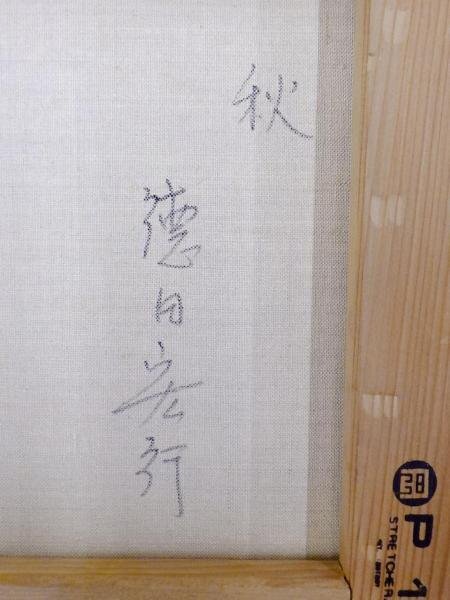 秋
徳田宏行
P 1
STRETCHER